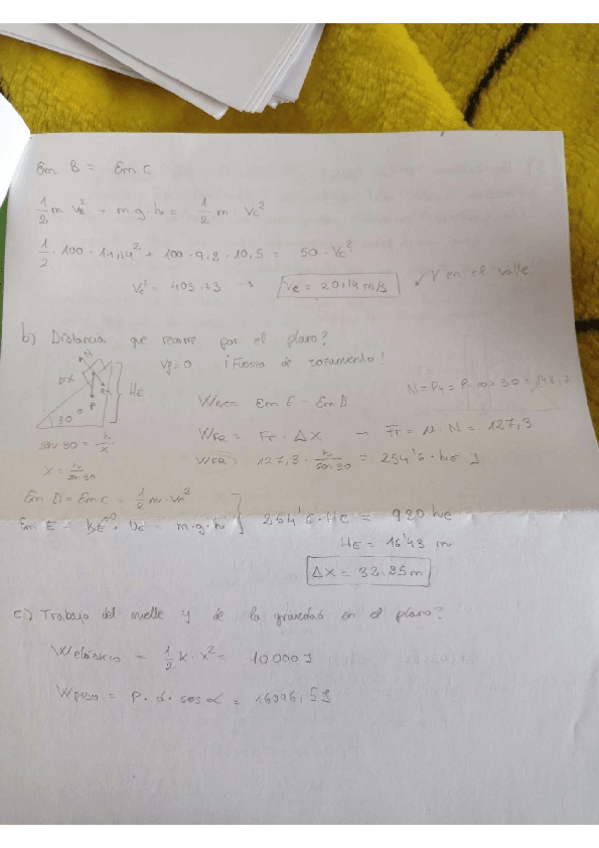 Em B = Em C
1/2 m VB² + m g·h = 1/2 m · Vc²
1/2 · 100 · 14,14² + 100·9,8·10,5 = 50 · Vc²
Vc² = 405.73 → Vc = 20,14 m/s ↙ V en el valle
b) Distancia que recorre por el plano?
Vf = 0 ¡Fuerza de rozamiento!
N
ΔX
HE
P
30°
N = Py = P · cos 30 = 848,7
WFR = Em E - Em D
WFR = Fr · ΔX → Fr = μ · N = 127,3
sen 30 = h/x
WFR = 127,3 · h/sen 30 = 254'6 · hE J
x = h/sen 30
Em D = Em C = 1/2 m · Vc²
Em E = m · g · h
254'6 · HE = 980 hE
HE = 16'43 m
ΔX = 32.85 m
c) Trabajo del muelle y de la gravedad en el plano?
W elástico = 1/2 k · x² = 10000 J
W peso = P · d · cos α =